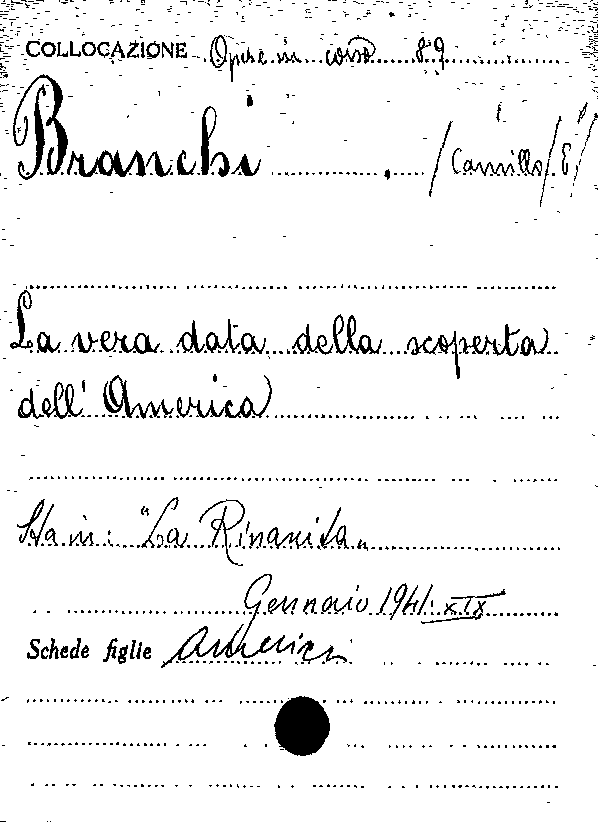 COLLOCAZIONE Opere in corso 89
Branchi /Camillo/E/
La vera data della scoperta
dell' America
Sta in: "La Rinanita„
Gennaio 1941: XIX
Schede figlie America